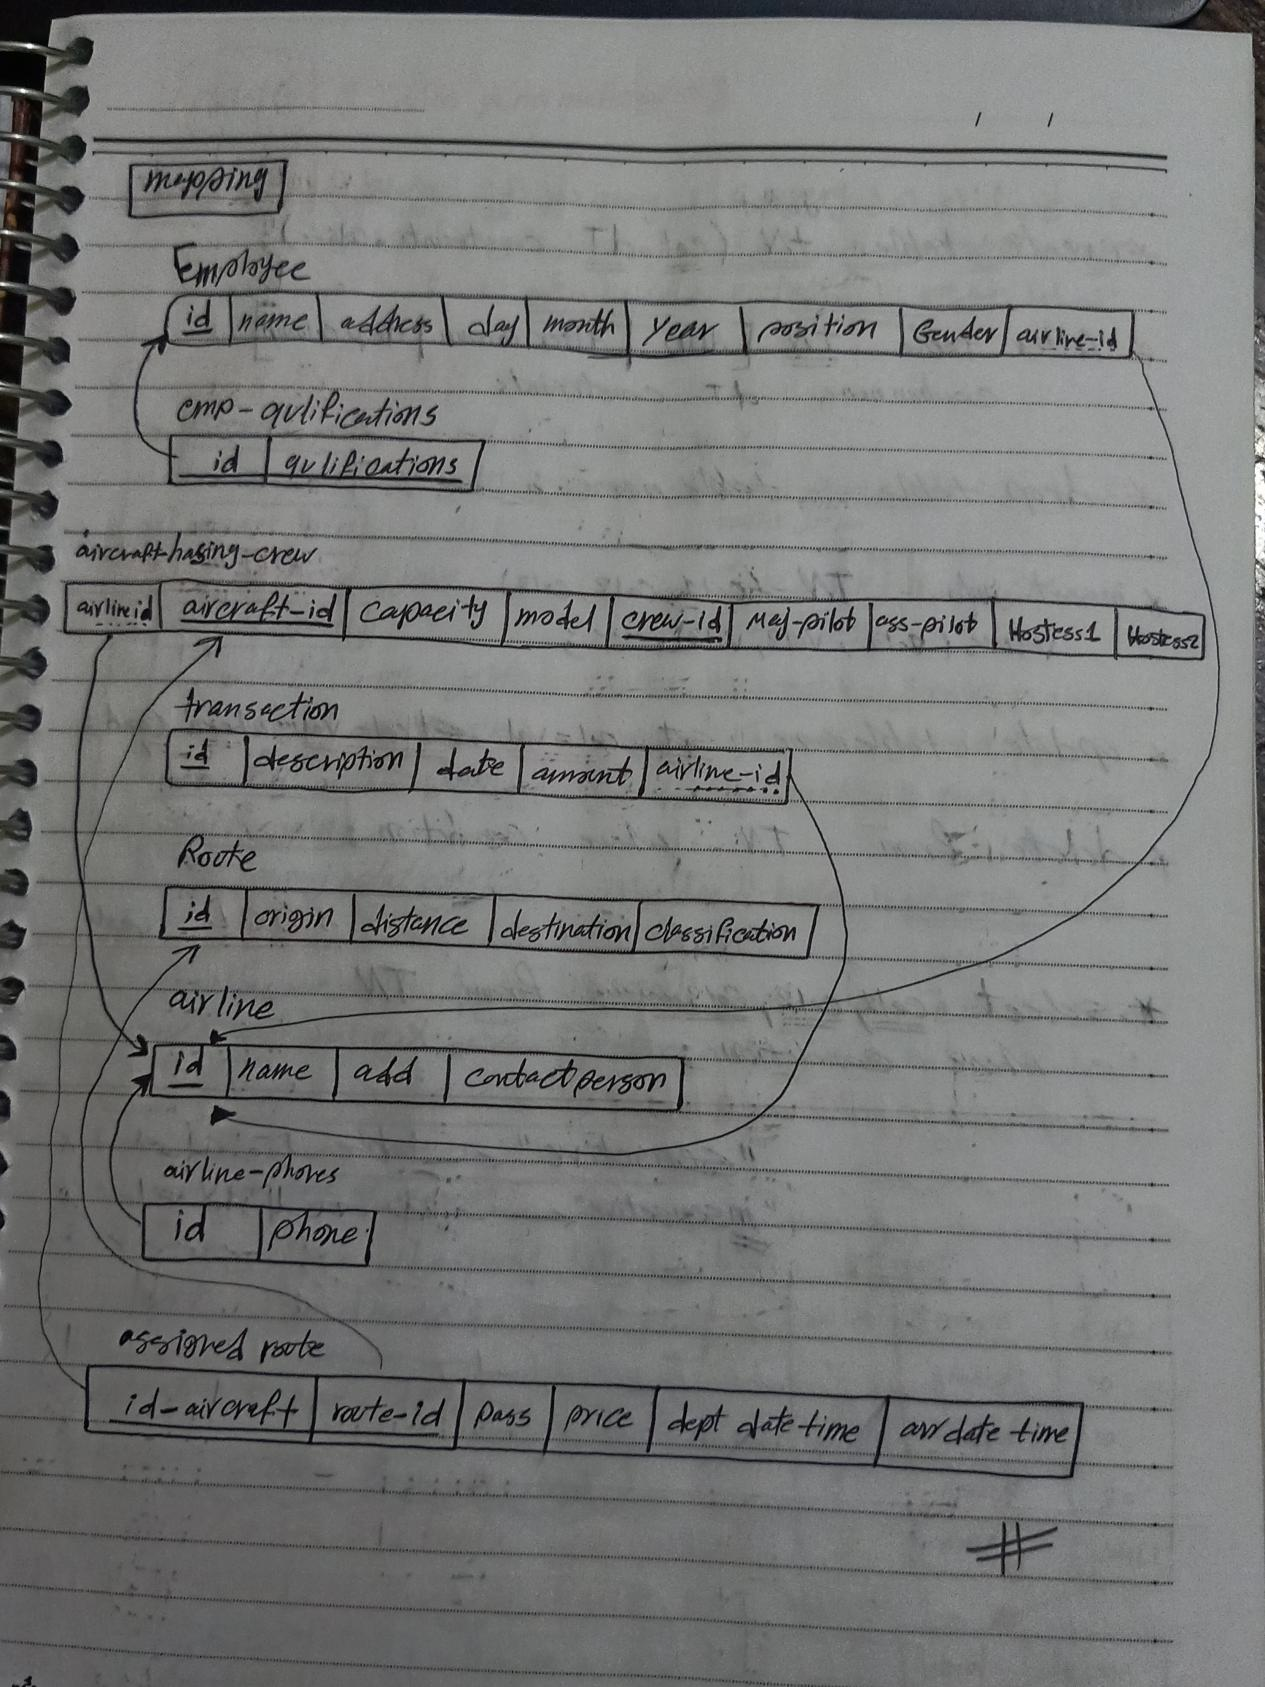 mapping
Employee
id name address day month year position Gender airline-id
emp-qulifications
id qulifications
aircraft-hasing-crew
airlineid aircraft-id capacity model crew-id Maj-pilot ass-pilot Hostess1 Hostess2
transaction
id description date amount airline-id
Route
id origin distance destination classification
airline
id name add contactperson
airline-phones
id phone
assigned route
id-aircraft route-id pass price dept date time arr date time